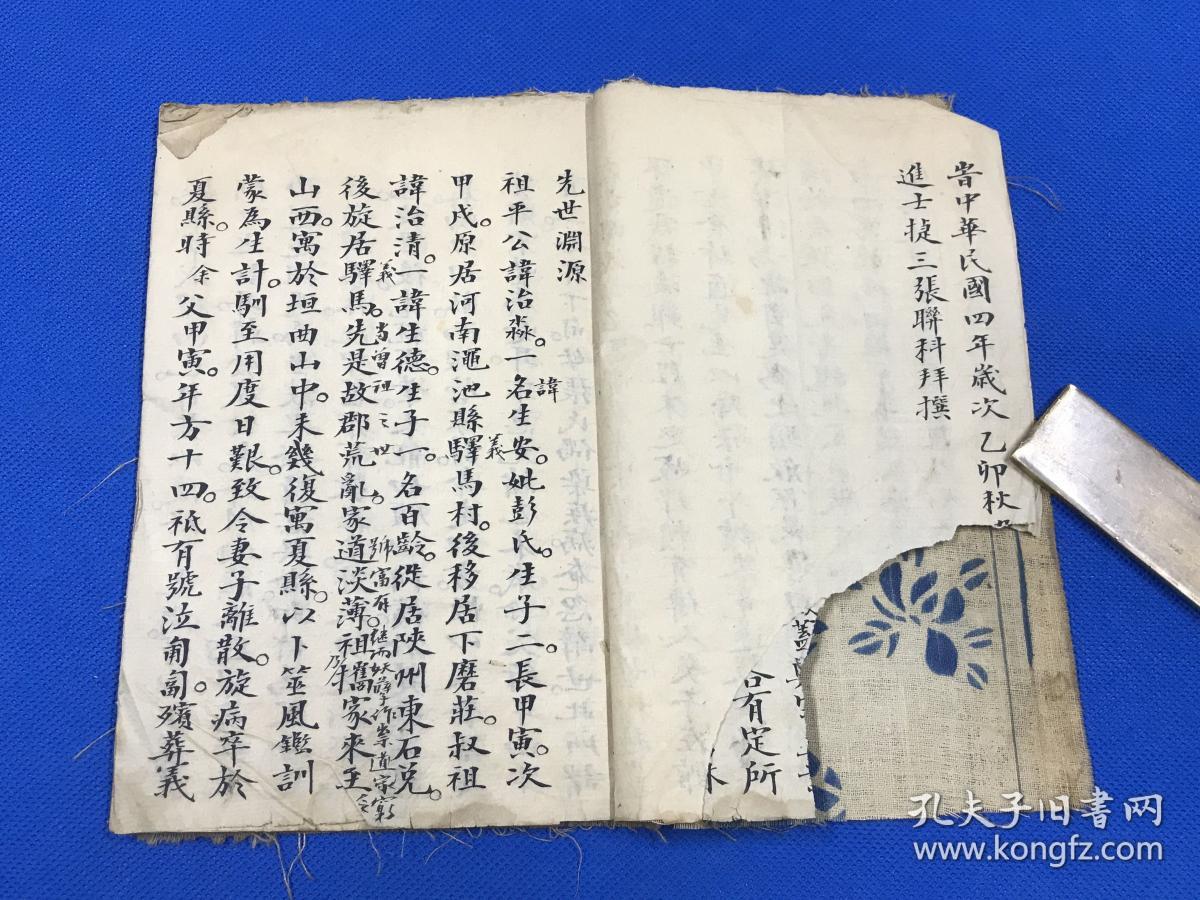 旹中華民國四年歲次乙卯秋
進士捷三張聯科拜撰
蓋
有定所
先世淵源
祖平公諱治淼。一諱名生安。妣彭氏。生子二。長甲寅。次
甲戌。原居河南澠池縣義驛馬村。後移居下磨莊。叔祖
諱治清。一諱生德。生子一。名百齡。從居陝州東石兑。
後旋居義驛馬。先是故郡荒亂。家道淡薄。祖乃舉舊家來至
當曾祖之世
號富有。繼而妖孽作祟道家窮
山西。寓於垣曲山中。未幾復寓夏縣。以卜筮風鑑訓
蒙為生計。馴至用度日艱。致令妻子離散。旋病卒於
夏縣。時余父甲寅。年方十四。祗有號泣匍匐。殯葬義
孔夫子旧書网
www.kongfz.com